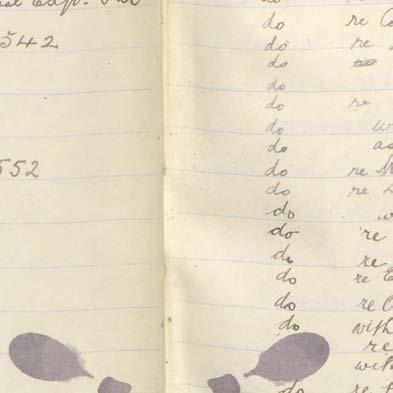 542
552
do
do re C
do re
do
do
do re
do w
do as
do re M
do re
do w
do re
do re
do re E
do re C
do with
re
with
do re